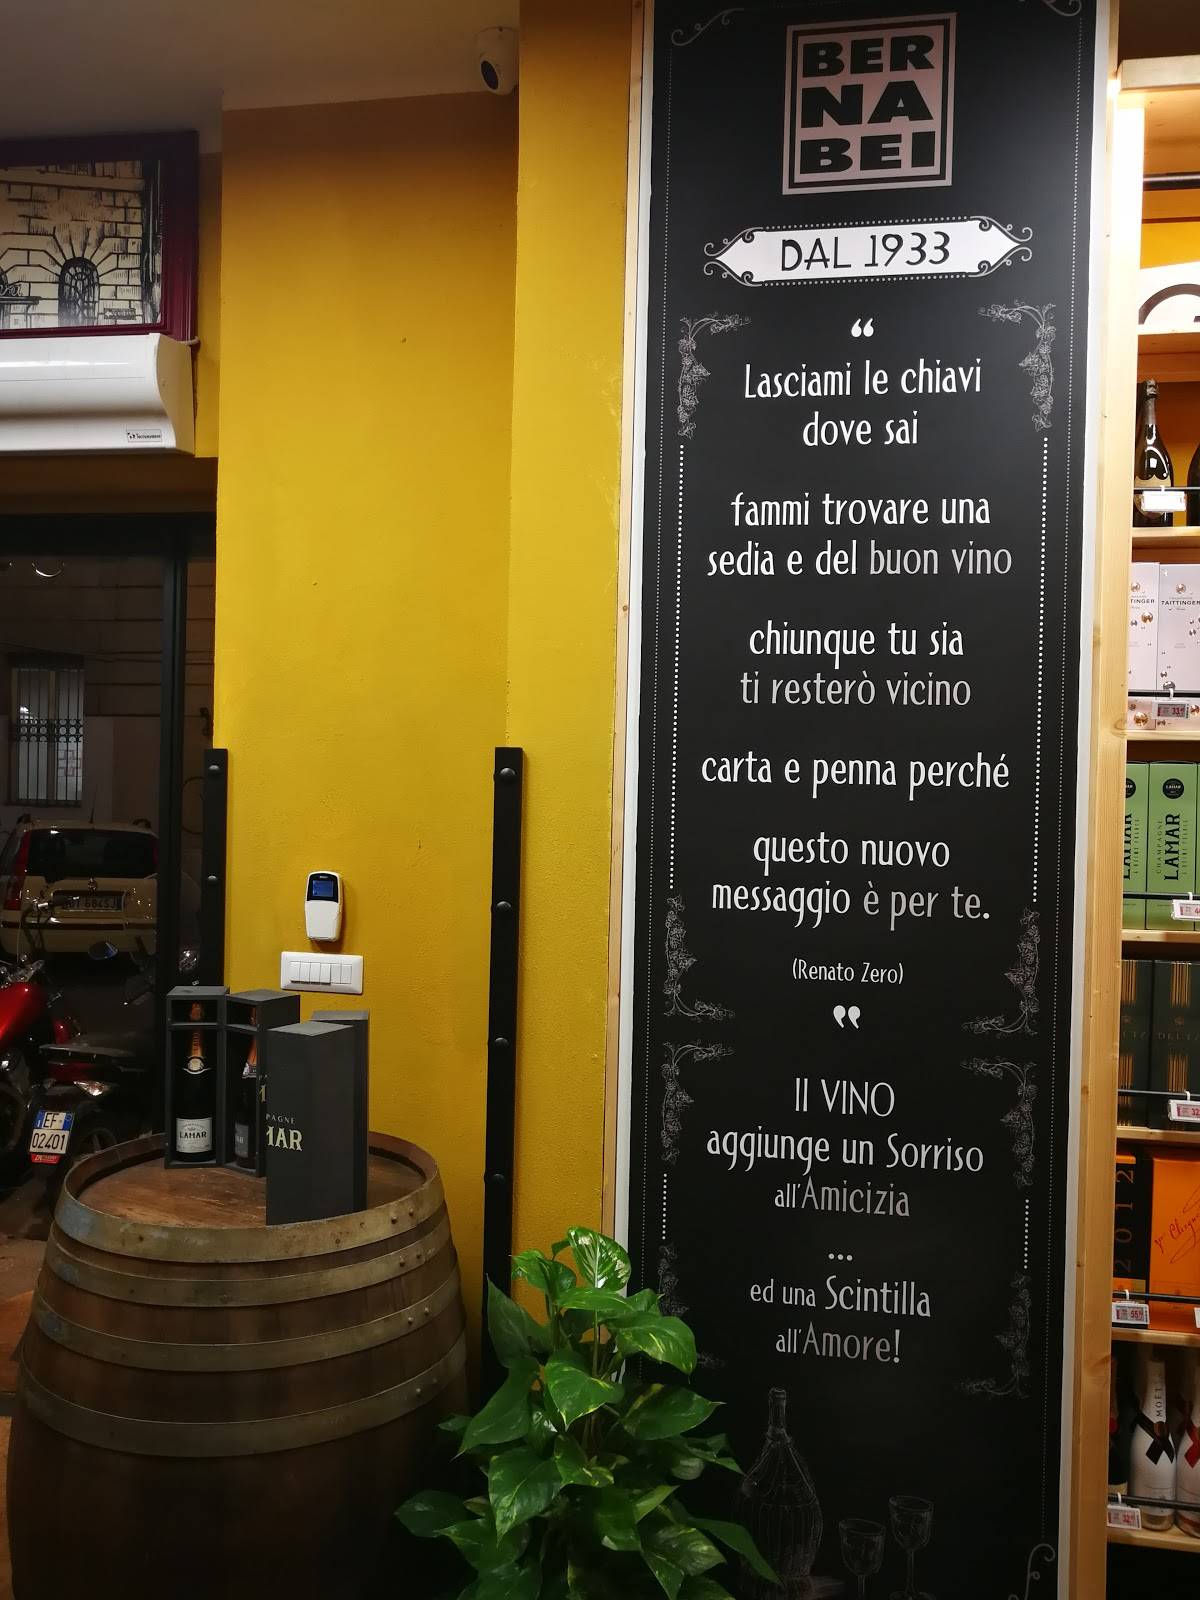 BER
NA
BEI
DAL 1933
“
Lasciami le chiavi
dove sai
fammi trovare una
sedia e del buon vino
chiunque tu sia
ti resterò vicino
carta e penna perché
questo nuovo
messaggio è per te.
(Renato Zero)
”
Il VINO
aggiunge un Sorriso
all'Amicizia
...
ed una Scintilla
all'Amore!
TAITTINGER
LAMAR
CHAMPAGNE
LAMAR
DEUTZ
2012
MOËT
LAMAR
EF
02401